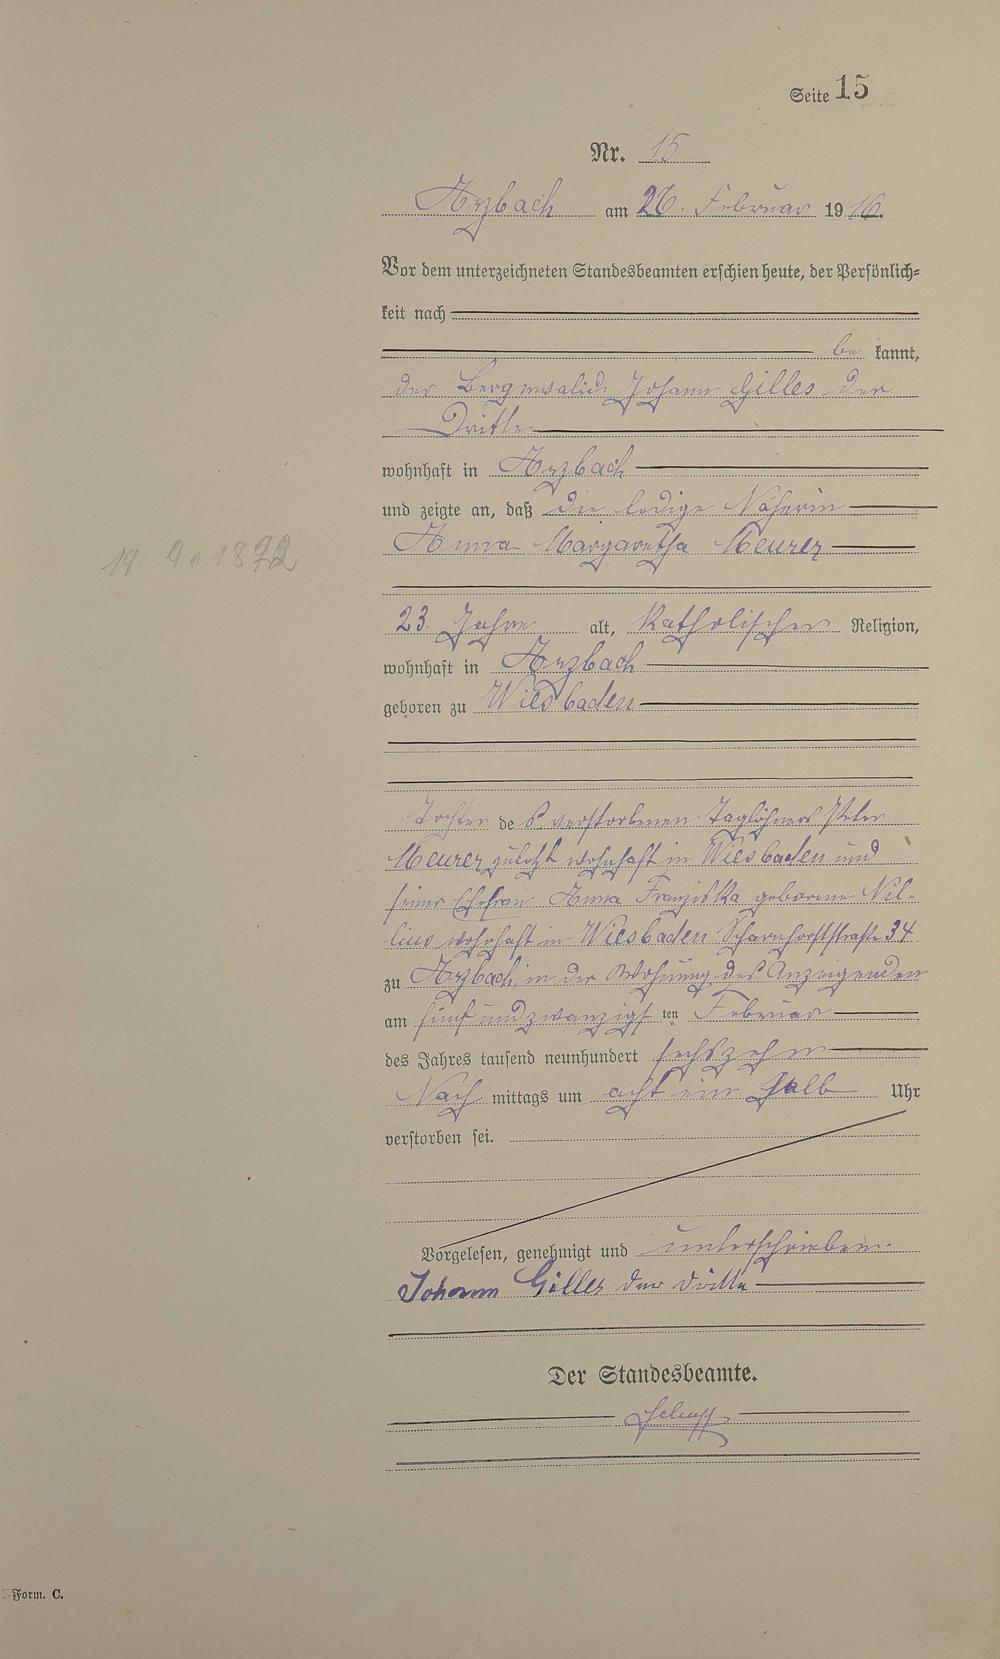 Seite 15
Nr. 15
Arzbach am 26. Februar 1916.
Vor dem unterzeichneten Standesbeamten erschien heute, der Persönlich=
keit nach
be kannt,
der Berginvalide Johann Gilles der
Dritte
wohnhaft in Arzbach
und zeigte an, daß die ledige Näherin
Anna Margaretha Meurer
19. 1892
23 Jahre alt, katholischer Religion,
wohnhaft in Arzbach
geboren zu Wiesbaden
Tochter des verstorbenen Taglöhners Peter
Meurer zuletzt wohnhaft in Wiesbaden und
seiner Ehefrau Anna Franziska geborene Nil-
lius wohnhaft in Wiesbaden Scharnhorststraße 34
zu Arzbach, in der Wohnung des Anzeigenden
am fünf und zwanzigsten Februar
des Jahres tausend neunhundert sechszehn
Nach mittags um acht ein halb Uhr
verstorben sei.
Vorgelesen, genehmigt und unterschrieben.
Johann Gilles der Dritte
Der Standesbeamte.
Form. C.